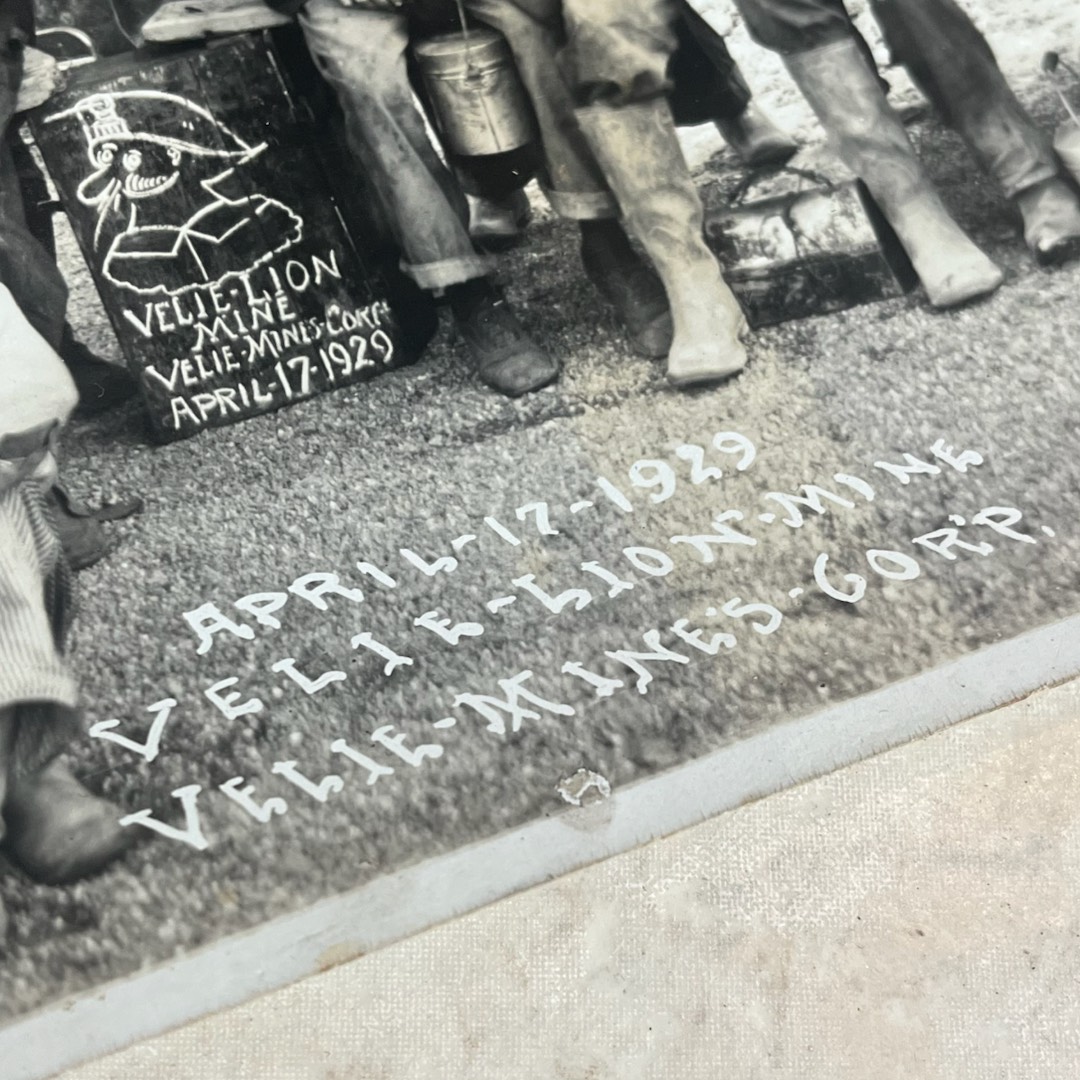 VELIE-LION
MINE
VELIE-MINES-CORP.
APRIL-17-1929
APRIL-17-1929
VELIE-LION-MINE
VELIE-MINE'S-CORP.